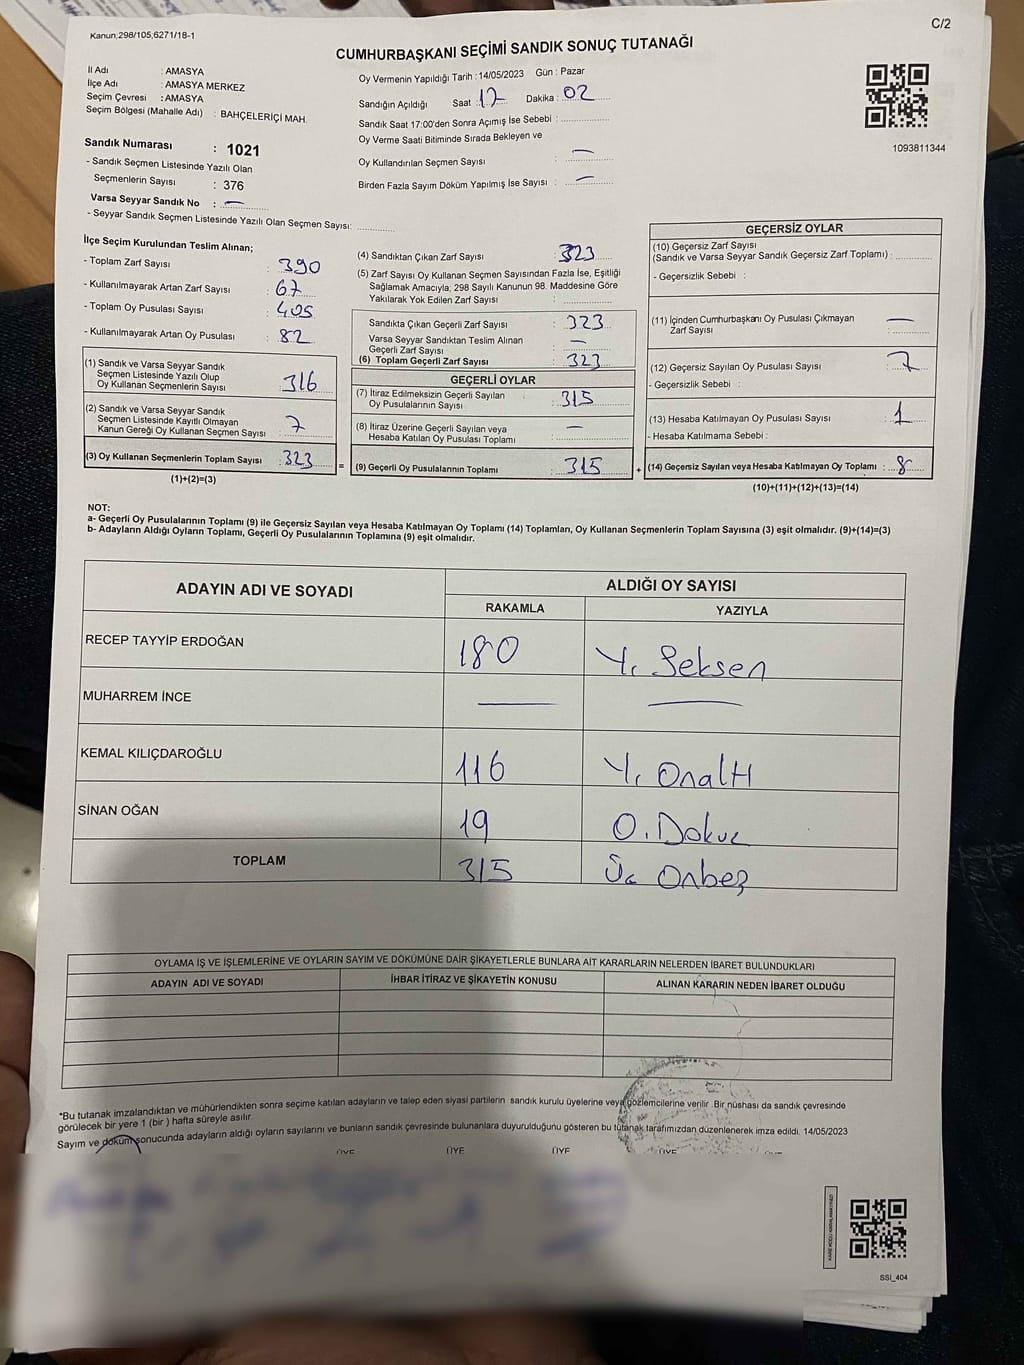 Kanun;298/105,6271/18-1
C/2
CUMHURBAŞKANI SEÇİMİ SANDIK SONUÇ TUTANAĞI
İl Adı : AMASYA
İlçe Adı : AMASYA MERKEZ
Seçim Çevresi : AMASYA
Seçim Bölgesi (Mahalle Adı) : BAHÇELERİÇİ MAH.
Sandık Numarası : 1021
- Sandık Seçmen Listesinde Yazılı Olan
Seçmenlerin Sayısı : 376
Varsa Seyyar Sandık No : —
- Seyyar Sandık Seçmen Listesinde Yazılı Olan Seçmen Sayısı:
Oy Vermenin Yapıldığı Tarih : 14/05/2023 Gün : Pazar
Sandığın Açıldığı Saat : 17 Dakika : 02
Sandık Saat 17:00'den Sonra Açılmış İse Sebebi :
Oy Verme Saati Bitiminde Sırada Bekleyen ve
Oy Kullandırılan Seçmen Sayısı : —
Birden Fazla Sayım Döküm Yapılmış İse Sayısı : —
1093811344
İlçe Seçim Kurulundan Teslim Alınan;
- Toplam Zarf Sayısı : 390
- Kullanılmayarak Artan Zarf Sayısı : 67
- Toplam Oy Pusulası Sayısı : 405
- Kullanılmayarak Artan Oy Pusulası : 82
(1) Sandık ve Varsa Seyyar Sandık
Seçmen Listesinde Yazılı Olup
Oy Kullanan Seçmenlerin Sayısı : 316
(2) Sandık ve Varsa Seyyar Sandık
Seçmen Listesinde Kayıtlı Olmayan
Kanun Gereği Oy Kullanan Seçmen Sayısı : 7
(3) Oy Kullanan Seçmenlerin Toplam Sayısı : 323
(1)+(2)=(3)
(4) Sandıktan Çıkan Zarf Sayısı : 323
(5) Zarf Sayısı Oy Kullanan Seçmen Sayısından Fazla İse, Eşitliği
Sağlamak Amacıyla; 298 Sayılı Kanunun 98. Maddesine Göre
Yakılarak Yok Edilen Zarf Sayısı :
Sandıkta Çıkan Geçerli Zarf Sayısı : 323
Varsa Seyyar Sandıktan Teslim Alınan
Geçerli Zarf Sayısı : —
(6) Toplam Geçerli Zarf Sayısı : 323
GEÇERLİ OYLAR
(7) İtiraz Edilmeksizin Geçerli Sayılan
Oy Pusulalarının Sayısı : 315
(8) İtiraz Üzerine Geçerli Sayılan veya
Hesaba Katılan Oy Pusulası Toplamı : —
= (9) Geçerli Oy Pusulalarının Toplamı : 315 +
GEÇERSİZ OYLAR
(10) Geçersiz Zarf Sayısı
(Sandık ve Varsa Seyyar Sandık Geçersiz Zarf Toplamı) :
- Geçersizlik Sebebi :
(11) İçinden Cumhurbaşkanı Oy Pusulası Çıkmayan
Zarf Sayısı : —
(12) Geçersiz Sayılan Oy Pusulası Sayısı : 7
- Geçersizlik Sebebi :
(13) Hesaba Katılmayan Oy Pusulası Sayısı : 1
- Hesaba Katılmama Sebebi :
(14) Geçersiz Sayılan veya Hesaba Katılmayan Oy Toplamı : 8
(10)+(11)+(12)+(13)=(14)
NOT:
a- Geçerli Oy Pusulalarının Toplamı (9) ile Geçersiz Sayılan veya Hesaba Katılmayan Oy Toplamı (14) Toplamları, Oy Kullanan Seçmenlerin Toplam Sayısına (3) eşit olmalıdır. (9)+(14)=(3)
b- Adayların Aldığı Oyların Toplamı, Geçerli Oy Pusulalarının Toplamına (9) eşit olmalıdır.
ADAYIN ADI VE SOYADI ALDIĞI OY SAYISI
RAKAMLA YAZIYLA
RECEP TAYYİP ERDOĞAN 180 Y. Seksen
MUHARREM İNCE — —
KEMAL KILIÇDAROĞLU 116 Y. Onaltı
SİNAN OĞAN 19 O. Dokuz
TOPLAM 315 Üç Onbeş
OYLAMA İŞ VE İŞLEMLERİNE VE OYLARIN SAYIM VE DÖKÜMÜNE DAİR ŞİKAYETLERLE BUNLARA AİT KARARLARIN NELERDEN İBARET BULUNDUKLARI
ADAYIN ADI VE SOYADI İHBAR İTİRAZ VE ŞİKAYETİN KONUSU ALINAN KARARIN NEDEN İBARET OLDUĞU
*Bu tutanak imzalandıktan ve mühürlendikten sonra seçime katılan adayların ve talep eden siyasi partilerin sandık kurulu üyelerine veya gözlemcilerine verilir. Bir nüshası da sandık çevresinde
görülecek bir yere 1 (bir ) hafta süreyle asılır.
Sayım ve döküm sonucunda adayların aldığı oyların sayılarını ve bunların sandık çevresinde bulunanlara duyurulduğunu gösteren bu tutanak tarafımızdan düzenlenerek imza edildi. 14/05/2023
ÜYE ÜYE ÜYE ÜYE
SSI_404